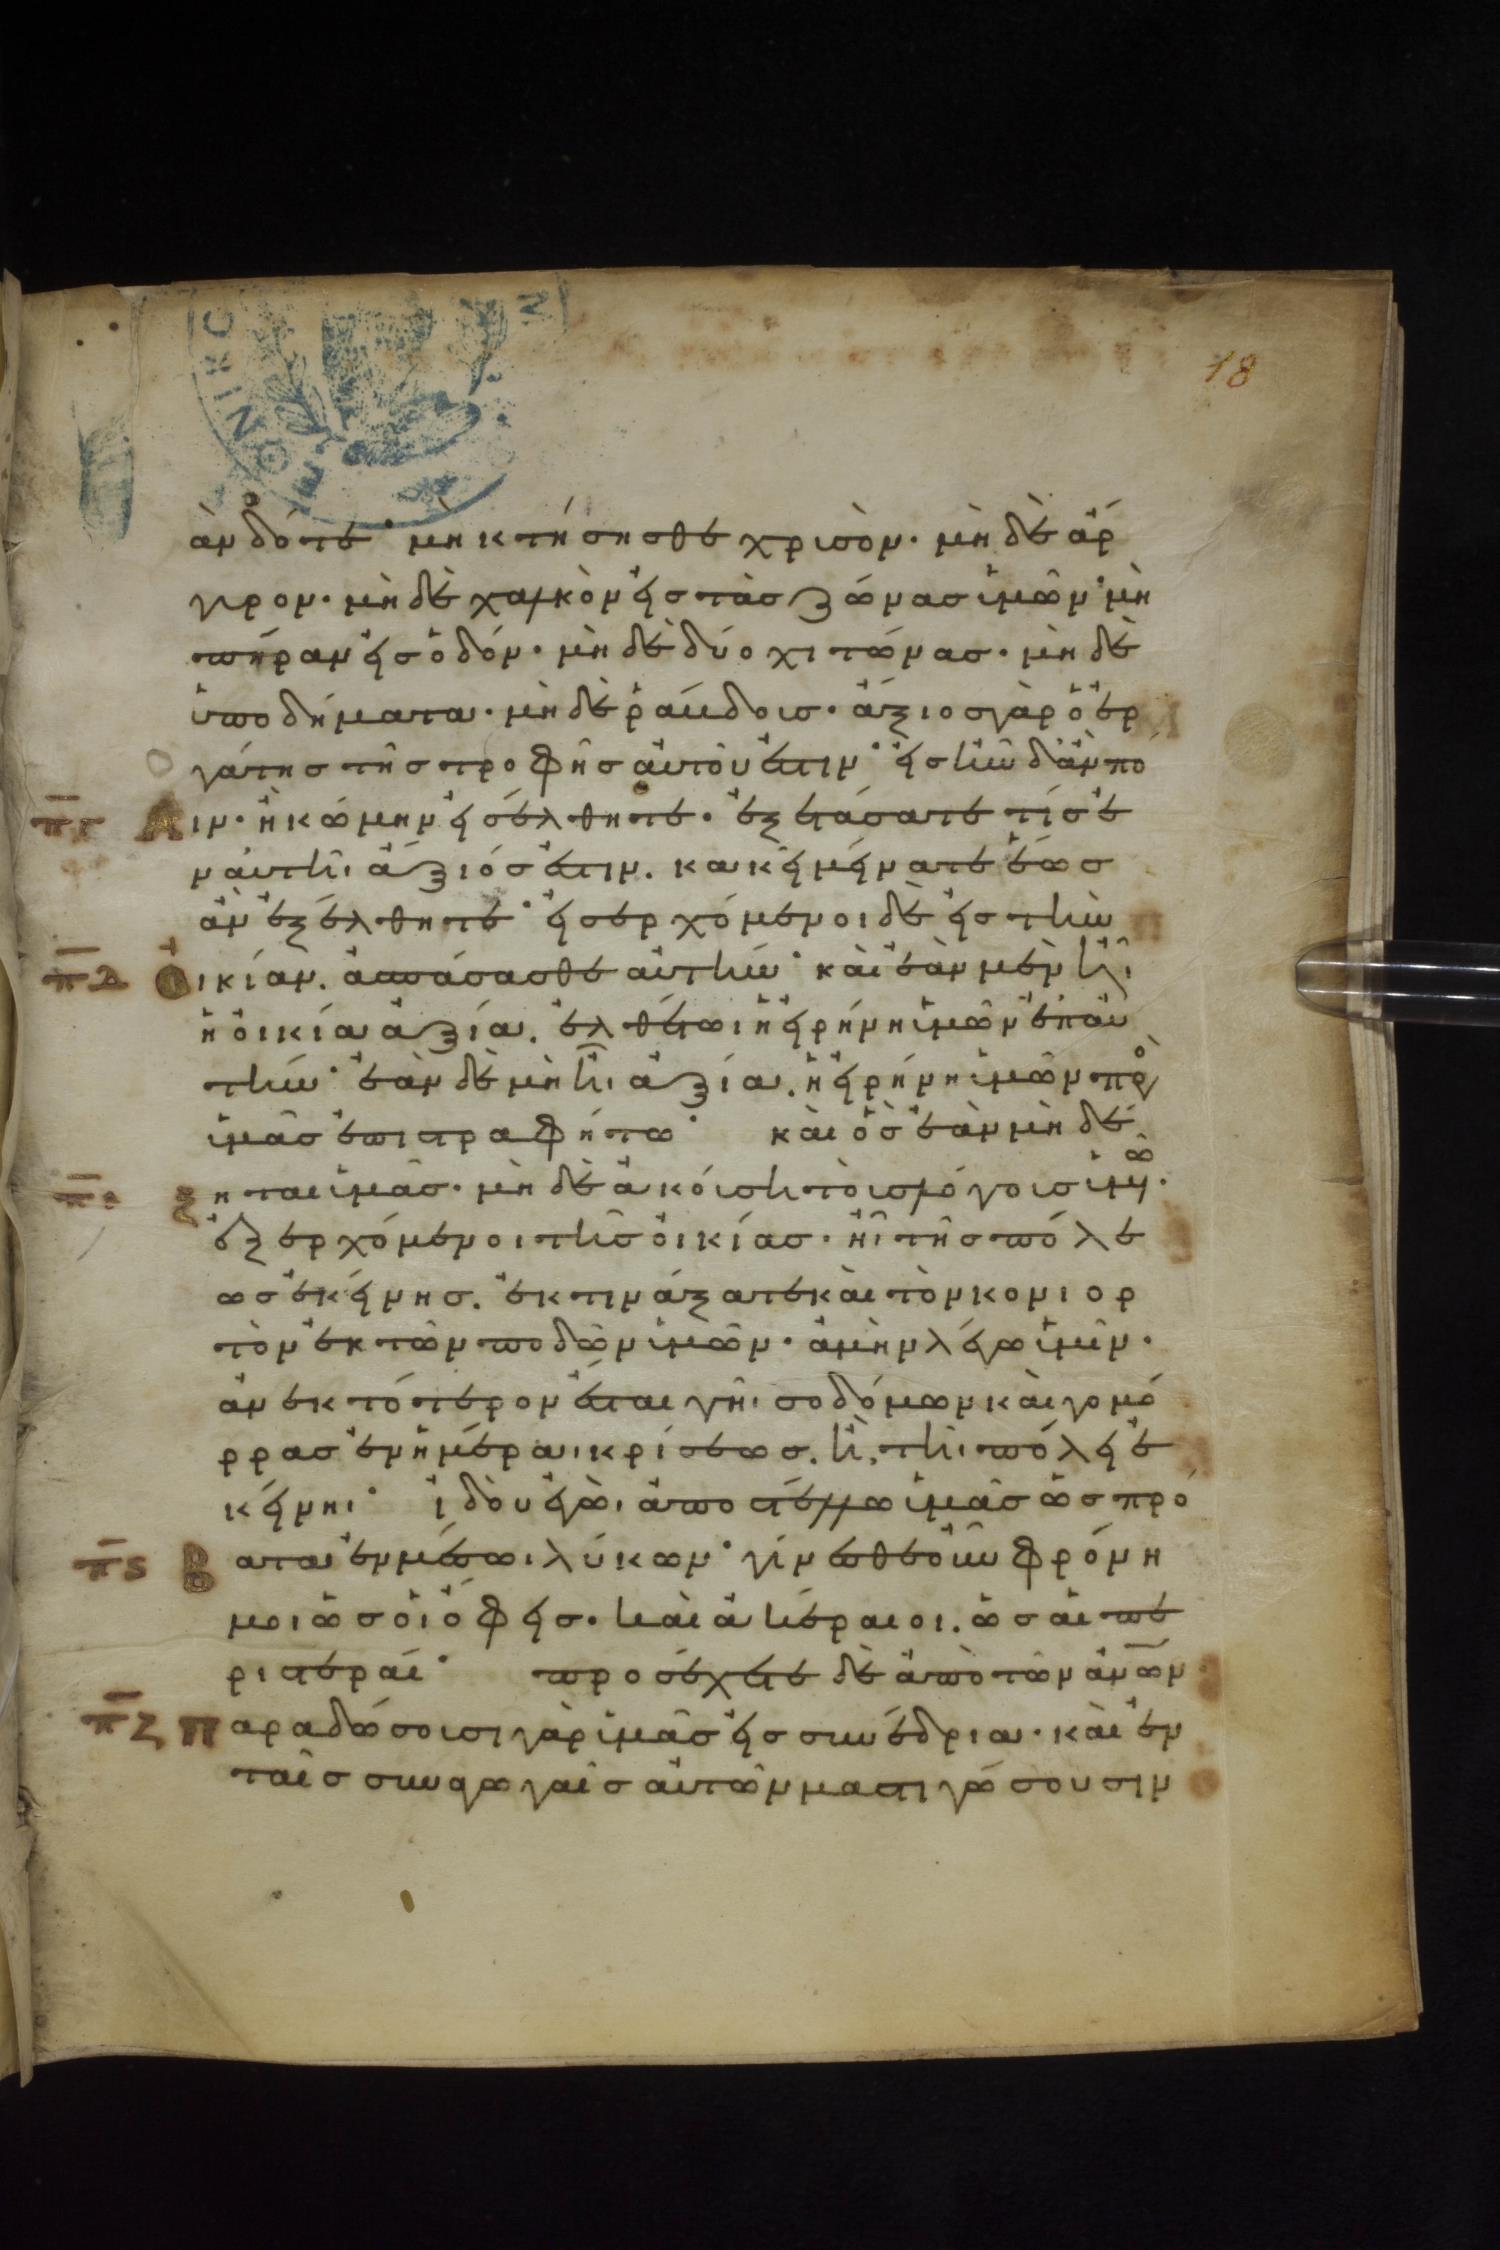 18
ὰν δότε· μὴ κτήσησθε χρισὸν· μὴ δὲ ἀρ
γιρον· μὴ δὲ χαλκὸν ἐις τὰσ ζώνασ ἱμῶν· μὴ
πήραν ἐισ ὁδόν· μὴ δὲ δύο χιτώνασ· μὴ δὲ
ὑποδήματα· μὴ δὲ ῥάυδοισ· ἄξιοσ γὰρ ὁ ἐρ
γάτησ τῆσ τροφῆσ ἀυτôυ ἐστιν· ἐισ ἣν δ' ἂν πό
λιν· ἢ κώμην ἐισέλθητε· ἐξετάσατε τίσ ἐ
ν ἀυτῆι ἄξιόσ ἐστιν. κακεῖ μείνατε ἕωσ
ἂν ἐξέλθητε· ἐισερχόμενοι δὲ ἐισ τὴν
οἰκίαν. ἀσπάσασθε ἀυτήν· κὰι ἐὰν μὲν ἦι
ἡ οἰκία ἀξία. ἐλθέτωι ἡ ἐιρήνη ἱμῶν ἐπ' ἀυ
τήν· ἐὰν δὲ μὴ ἦι ἀξία. ἡ ἐιρήνη ἱμῶν πρὸ
ἱμᾶσ ἐπιστραφήτω· κὰι ὃσ ἐὰν μὴ δέ
ξηται ἱμᾶσ· μὴ δὲ ἀκόισῃ τὸισ λόγοισ ἱμῶν·
ἐξερχόμενοι τῆσ οἰκίασ· ἢι τῆσ πόλε
ωσ ἐκείνησ. ἐκτινάξατε κὰι τὸν κονιορ
τὸν ἐκ τῶν ποδῶν ἱμῶν· ἀμὴν λέγω ἱμῖν·
ἀνεκτότερον ἔσται γῆι σοδόμων κὰι γομό
ρρασ ἐν ἡμέραι κρίσεωσ. ἢ, τῆι πόλει ἐ
κείνηι· ἰδοὺ ἐγὼι ἀποστέλλω ἱμᾶσ ὡσ πρό
βατα ἐν μέσωι λύκων· γίνεσθε οὖν φρόνη
μοι ὡσ οἱ ὄφεισ· κὰι ἀκέραιοι. ὡσ ἁι πε
ριστεραί· προσέχετε δὲ ἀπὸ τῶν ἀνῶν
παραδώσοισι γὰρ ἱμᾶσ ἐισ συνέδρια· κὰι ἐν
τᾶισ συναγωγᾶισ ἀυτῶν μαστιγώσουσιν
π̅γ
π̅δ
π̅ε
π̅ϛ
π̅ζ